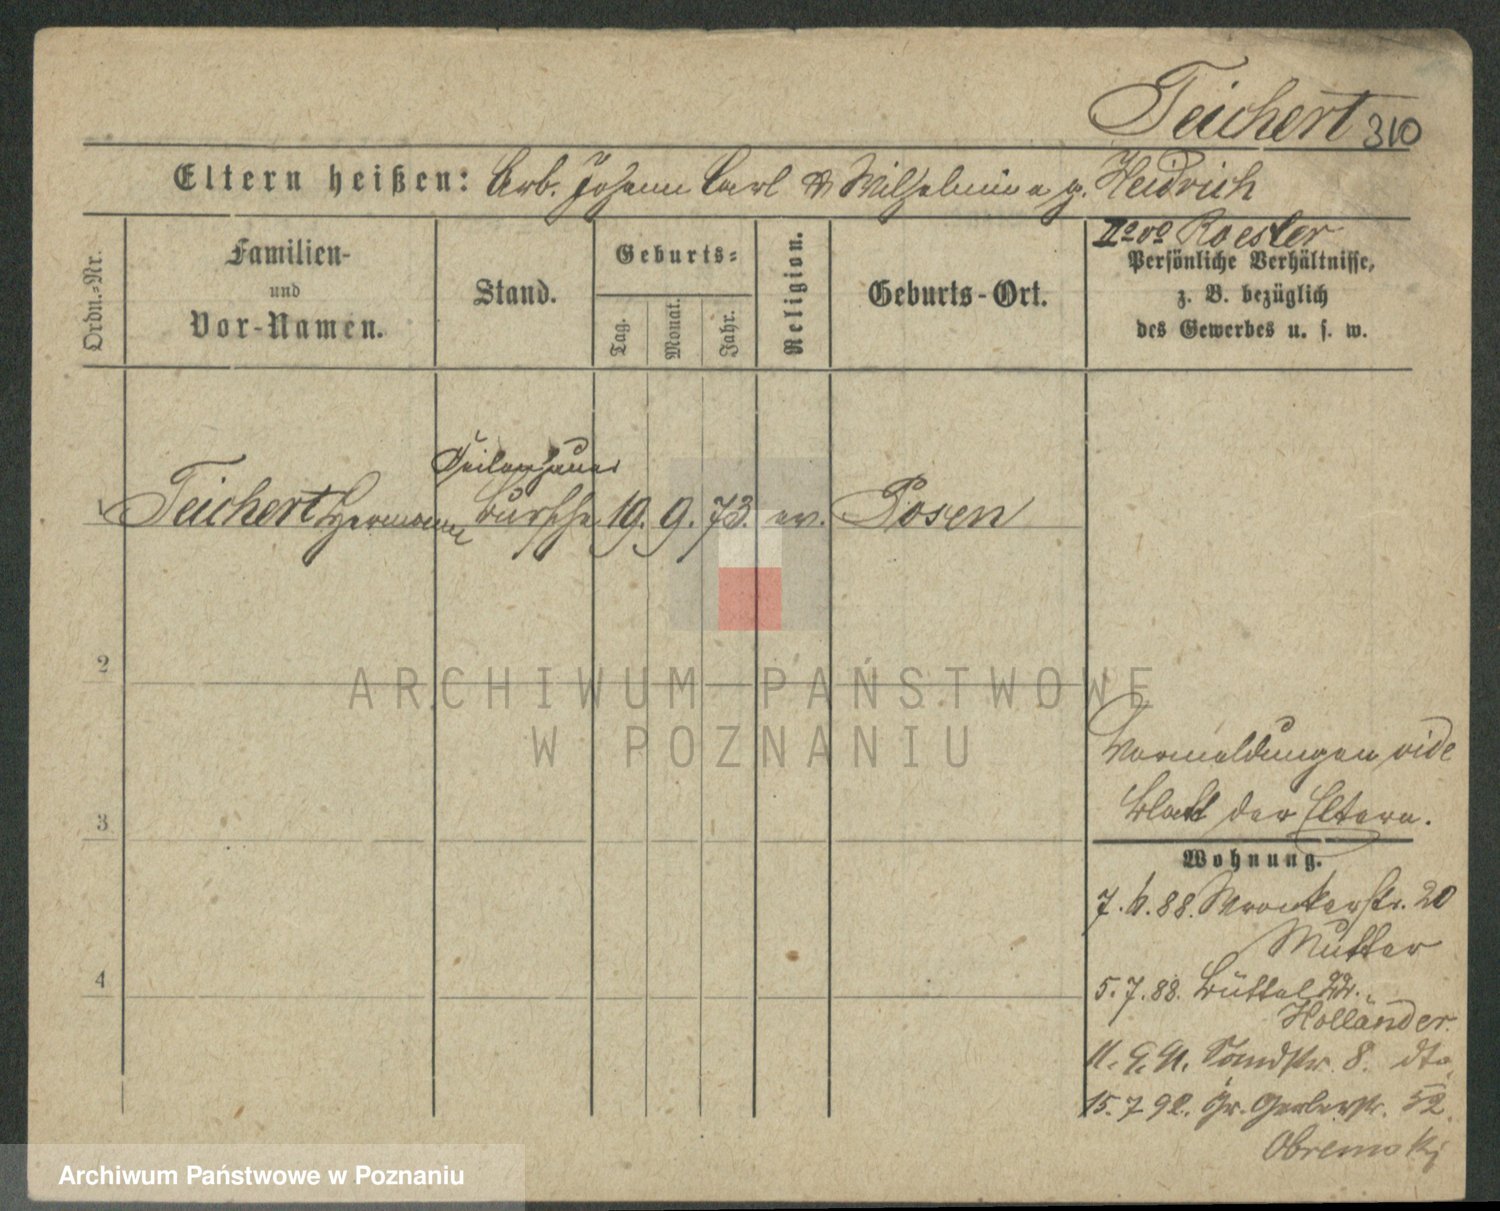 Teichert 310
Eltern heißen: Arb. Johann Carl & Wilhelmine g. Heidrich
IIo vo Roesler
Ordn.-Nr.
Familien-
und
Vor-Namen.
Stand.
Geburts-
Tag.
Monat.
Jahr.
Religion.
Geburts-Ort.
Persönliche Verhältnisse,
z. B. bezüglich
des Gewerbes u. s. w.
Feilenhauer
1 Teichert Hermann bursche 19. 9. 73. ev. Posen
2
ARCHIWUM PAŃSTWOWE
W POZNANIU
Vormeldungen vide
Blatt der Eltern.
3
Wohnung.
7. 6. 88. Wronkerstr. 20
Mutter
4
5. 7. 88. Büttel
Holländer.
11. 9. 91. Sandstr. 8. dto.
15. 7 92. Gr. Gerberstr. 52.
Obremski
Archiwum Państwowe w Poznaniu